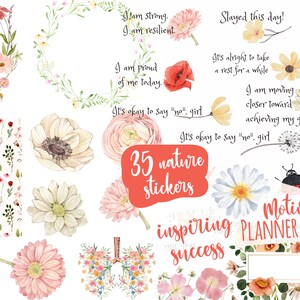 I am strong.
I am resilient.
Slayed this day!
I am proud
of me today.
It's alright to take
a rest for a while
It's okay to say "no", girl
I am moving
closer toward
achieving my
It's okay to say "no", girl
35 nature
stickers
inspiring
success
PLANNER